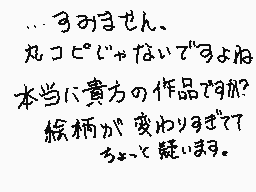 …すみません、
丸コピじゃないですよね
本当に貴方の作品ですか?
絵柄が変わりすぎてて
ちょっと疑います。